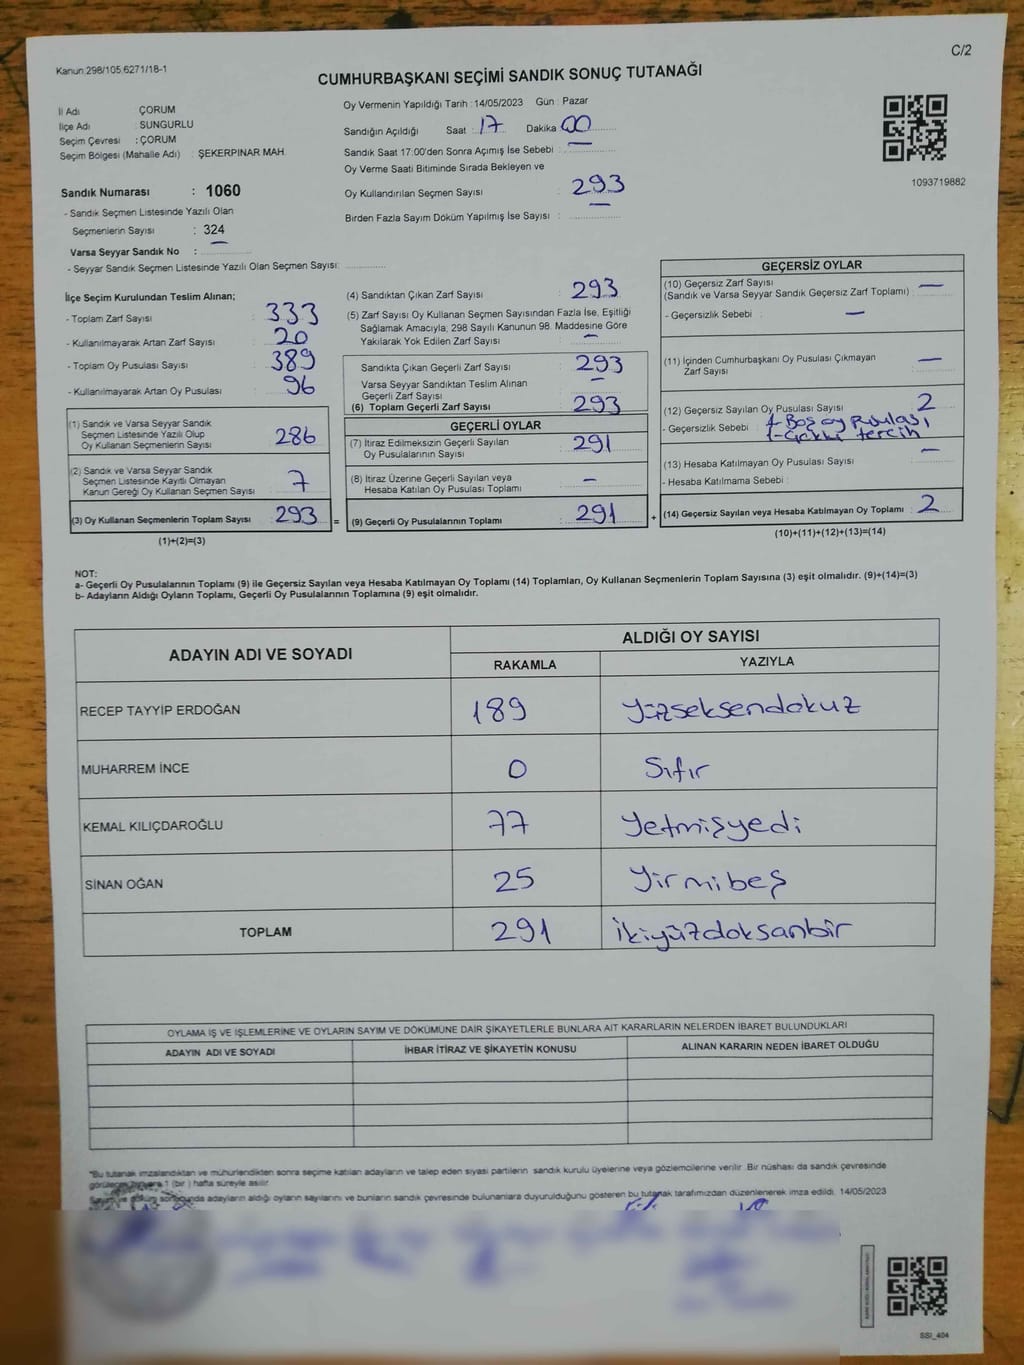 Kanun:298/105,6271/18-1
C/2
CUMHURBAŞKANI SEÇİMİ SANDIK SONUÇ TUTANAĞI
İl Adı ÇORUM
İlçe Adı : SUNGURLU
Seçim Çevresi : ÇORUM
Seçim Bölgesi (Mahalle Adı) : ŞEKERPINAR MAH.
Sandık Numarası : 1060
- Sandık Seçmen Listesinde Yazılı Olan
Seçmenlerin Sayısı : 324
Varsa Seyyar Sandık No :
- Seyyar Sandık Seçmen Listesinde Yazılı Olan Seçmen Sayısı:
Oy Vermenin Yapıldığı Tarih : 14/05/2023 Gün : Pazar
Sandığın Açıldığı Saat : 17 Dakika : 00
Sandık Saat 17:00'den Sonra Açımış İse Sebebi : —
Oy Verme Saati Bitiminde Sırada Bekleyen ve
Oy Kullandırılan Seçmen Sayısı : 293
Birden Fazla Sayım Döküm Yapılmış İse Sayısı : —
1093719882
İlçe Seçim Kurulundan Teslim Alınan;
- Toplam Zarf Sayısı : 333
- Kullanılmayarak Artan Zarf Sayısı : 20
- Toplam Oy Pusulası Sayısı : 389
- Kullanılmayarak Artan Oy Pusulası : 96
(1) Sandık ve Varsa Seyyar Sandık
Seçmen Listesinde Yazılı Olup
Oy Kullanan Seçmenlerin Sayısı : 286
(2) Sandık ve Varsa Seyyar Sandık
Seçmen Listesinde Kayıtlı Olmayan
Kanun Gereği Oy Kullanan Seçmen Sayısı : 7
(3) Oy Kullanan Seçmenlerin Toplam Sayısı : 293
(1)+(2)=(3)
(4) Sandıktan Çıkan Zarf Sayısı : 293
(5) Zarf Sayısı Oy Kullanan Seçmen Sayısından Fazla İse, Eşitliği
Sağlamak Amacıyla, 298 Sayılı Kanunun 98. Maddesine Göre
Yakılarak Yok Edilen Zarf Sayısı : —
Sandıkta Çıkan Geçerli Zarf Sayısı : 293
Varsa Seyyar Sandıktan Teslim Alınan
Geçerli Zarf Sayısı : —
(6) Toplam Geçerli Zarf Sayısı : 293
GEÇERLİ OYLAR
(7) İtiraz Edilmeksizin Geçerli Sayılan
Oy Pusulalarının Sayısı : 291
(8) İtiraz Üzerine Geçerli Sayılan veya
Hesaba Katılan Oy Pusulası Toplamı : —
= (9) Geçerli Oy Pusulalarının Toplamı : 291
GEÇERSİZ OYLAR
(10) Geçersiz Zarf Sayısı
(Sandık ve Varsa Seyyar Sandık Geçersiz Zarf Toplamı) : —
- Geçersizlik Sebebi : —
(11) İçinden Cumhurbaşkanı Oy Pusulası Çıkmayan
Zarf Sayısı : —
(12) Geçersiz Sayılan Oy Pusulası Sayısı : 2
- Geçersizlik Sebebi : 1- Boş oy Pusulası,
tercih
(13) Hesaba Katılmayan Oy Pusulası Sayısı : —
- Hesaba Katılmama Sebebi :
+ (14) Geçersiz Sayılan veya Hesaba Katılmayan Oy Toplamı : 2
(10)+(11)+(12)+(13)=(14)
NOT:
a- Geçerli Oy Pusulalarının Toplamı (9) ile Geçersiz Sayılan veya Hesaba Katılmayan Oy Toplamı (14) Toplamları, Oy Kullanan Seçmenlerin Toplam Sayısına (3) eşit olmalıdır. (9)+(14)=(3)
b- Adayların Aldığı Oyların Toplamı, Geçerli Oy Pusulalarının Toplamına (9) eşit olmalıdır.
ADAYIN ADI VE SOYADI ALDIĞI OY SAYISI
RAKAMLA YAZIYLA
RECEP TAYYİP ERDOĞAN 189 Yüzseksendokuz
MUHARREM İNCE 0 Sıfır
KEMAL KILIÇDAROĞLU 77 Yetmişyedi
SİNAN OĞAN 25 Yirmibeş
TOPLAM 291 İkiyüzdoksanbir
OYLAMA İŞ VE İŞLEMLERİNE VE OYLARIN SAYIM VE DÖKÜMÜNE DAİR ŞİKAYETLERLE BUNLARA AİT KARARLARIN NELERDEN İBARET BULUNDUKLARI
ADAYIN ADI VE SOYADI İHBAR İTİRAZ VE ŞİKAYETİN KONUSU ALINAN KARARIN NEDEN İBARET OLDUĞU
*Bu tutanak imzalandıktan ve mühürlendikten sonra seçime katılan adayların ve talep eden siyasi partilerin sandık kurulu üyelerine veya gözlemcilerine verilir. Bir nüshası da sandık çevresinde
görülecek bir yere 1 (bir) hafta süreyle asılır.
Sayım ve döküm sonucunda adayların aldığı oyların sayılarını ve bunların sandık çevresinde bulunanlara duyurulduğunu gösteren bu tutanak tarafımızdan düzenlenerek imza edildi. 14/05/2023
SSI_404